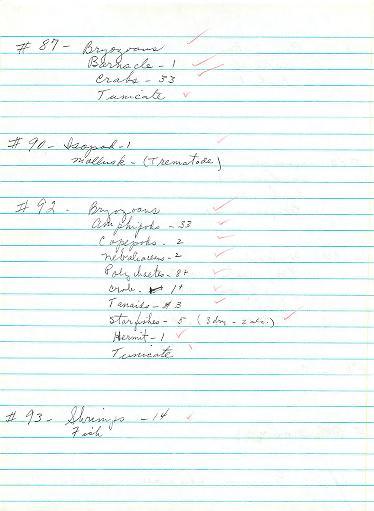 # 87 - Bryozoans
Barnacle - 1
Crabs - 33
Tunicate
# 90 - Isopod - 1
Mollusk - (Trematode)
# 92 - Bryozoans
Amphipods - 33
Copepods - 2
Nebaliaceans - 2
Polychaetes - 8+
Crab - 1+
Tanaids - 3
Starfishes - 5 (3 dry - 2 alc.)
Hermit - 1
Tunicate
# 93 - Shrimps - 14
Fish